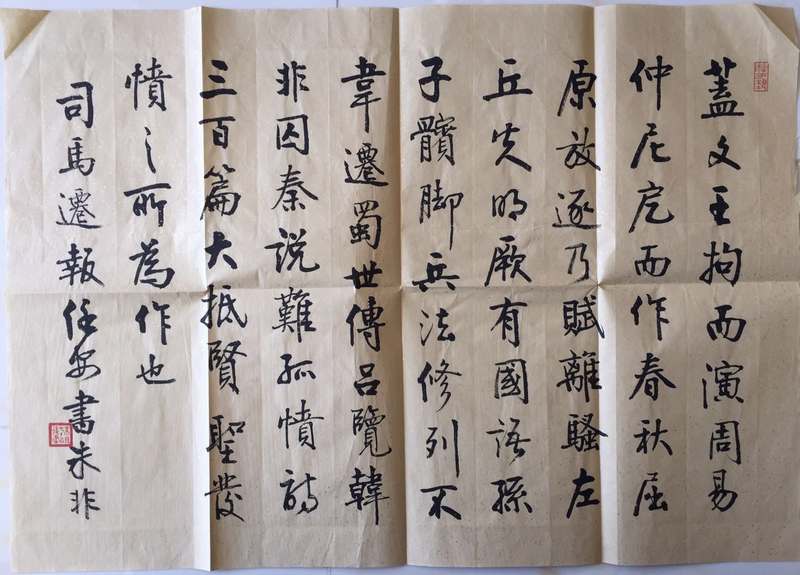 蓋文王拘而演周易
仲尼戹而作春秋屈
原放逐乃賦離騷左
丘失明厥有國語孫
子髕脚兵法修列不
韋遷蜀世傳呂覽韓
非囚秦説難孤憤詩
三百篇大抵賢聖發
憤之所為作也
司馬遷報任安書朱非